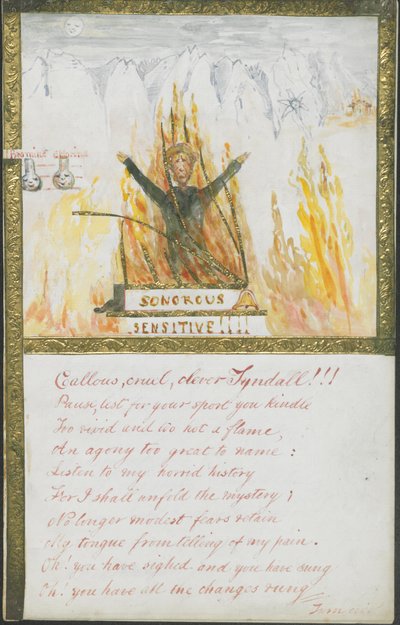 SONOROUS
SENSITIVE!!!!
Callous, cruel, clever Tyndall!!!
Pause, lest for your sport you kindle
Too vivid and too hot a flame,
An agony too great to name:
Listen to my horrid history
For I shall unfold the mystery;
No longer modest fears retain
My tongue from telling of my pain.
Oh! you have sighed and you have sung
Oh! you have all the changes rung
Turn over